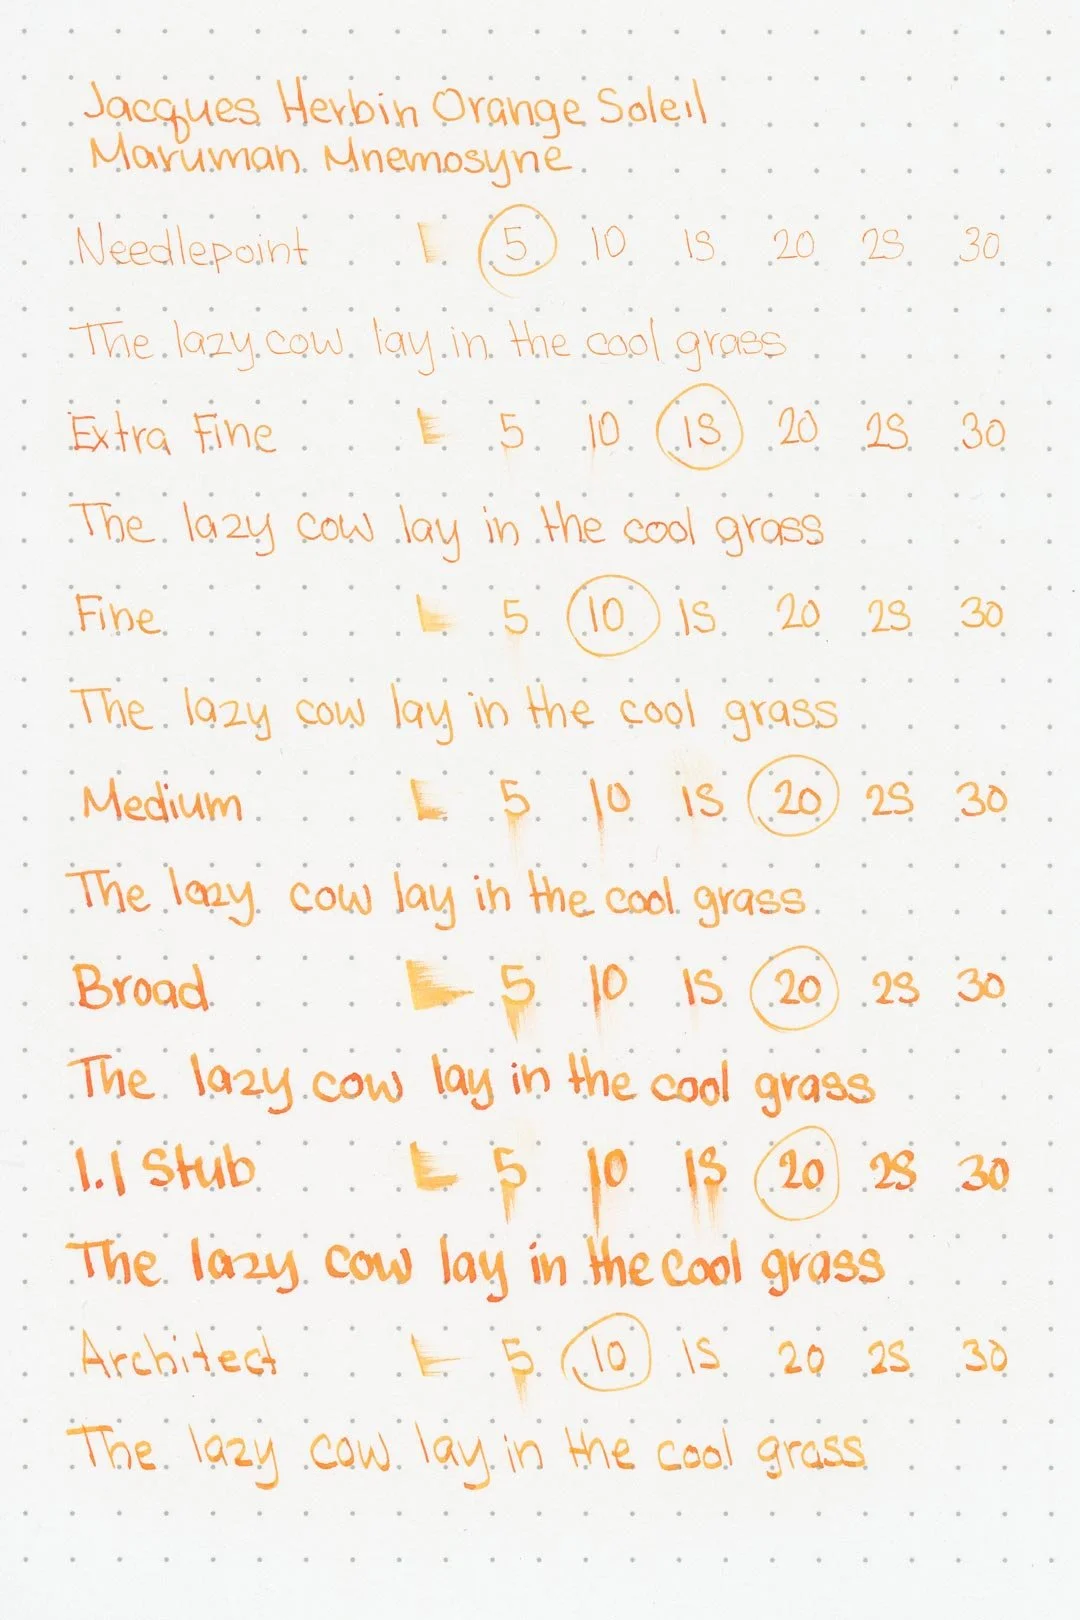 Jacques Herbin Orange Soleil
Maruman Mnemosyne
Needlepoint L 5 10 15 20 25 30
The lazy cow lay in the cool grass
Extra Fine L 5 10 15 20 25 30
The lazy cow lay in the cool grass
Fine L 5 10 15 20 25 30
The lazy cow lay in the cool grass
Medium L 5 10 15 20 25 30
The lazy cow lay in the cool grass
Broad L 5 10 15 20 25 30
The lazy cow lay in the cool grass
1.1 Stub L 5 10 15 20 25 30
The lazy cow lay in the cool grass
Architect L 5 10 15 20 25 30
The lazy cow lay in the cool grass